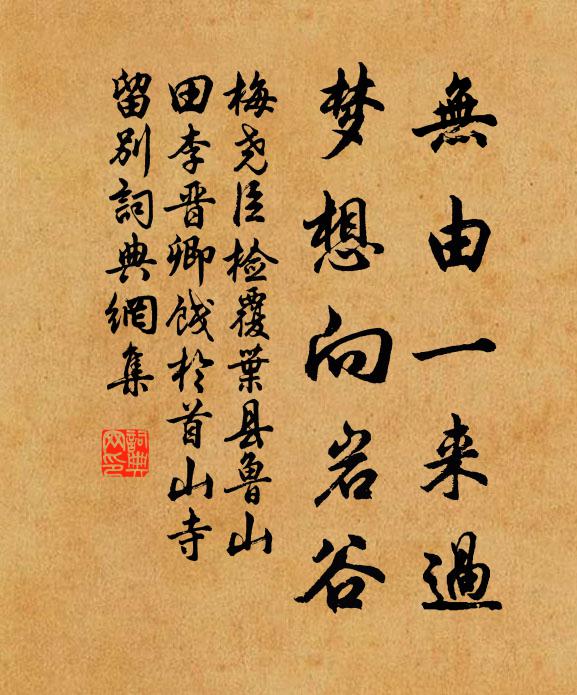 無由一来過
梦想向岩谷
梅尧臣检覆葉县魯山
田李晋卿餞於首山寺
留别詞典網集
詞典網印